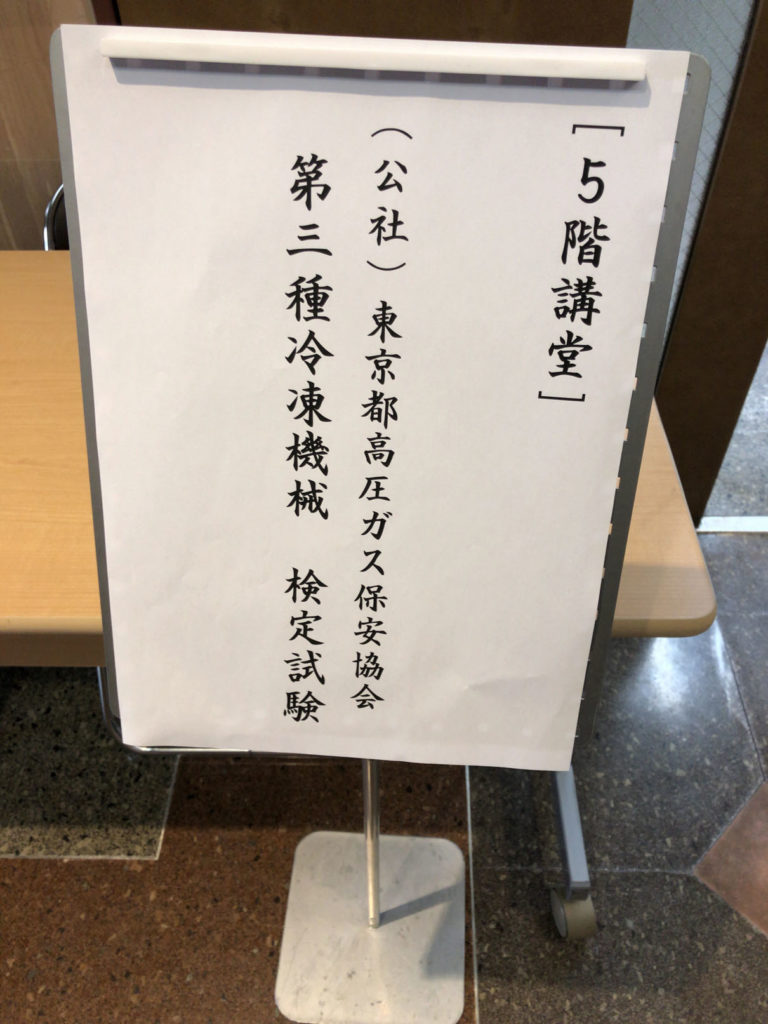 ［５階講堂］
（公社）東京都高圧ガス保安協会
第三種冷凍機械　検定試験